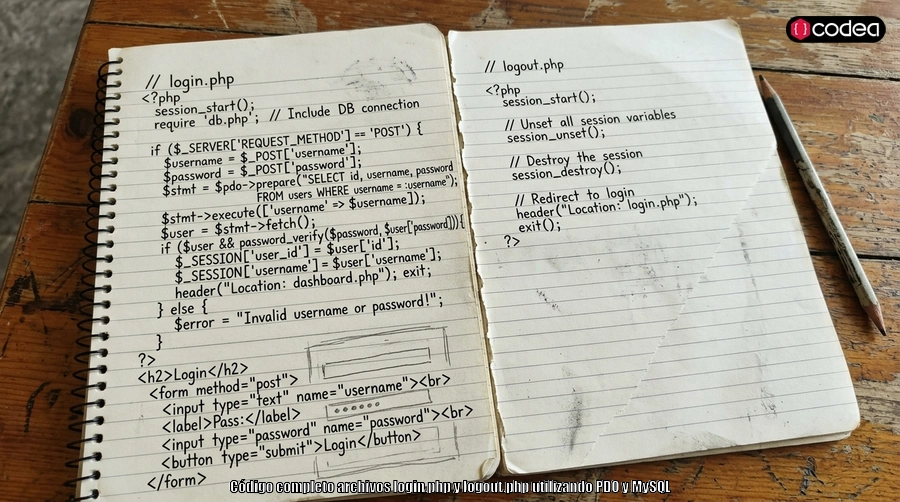 // login.php
<?php
session_start();
require 'db.php';  // Include DB connection
if ($_SERVER['REQUEST_METHOD'] == 'POST') {
$username = $_POST['username'];
$password = $_POST['password'];
$stmt = $pdo->prepare("SELECT id, username, password
FROM users WHERE username = :username");
$stmt->execute(['username' => $username]);
$user = $stmt->fetch();
if ($user && password_verify($password, $user['password'])) {
$_SESSION['user_id'] = $user['id'];
$_SESSION['username'] = $user['username'];
header("Location: dashboard.php"); exit;
} else {
$error = "Invalid username or password!";
}
?>
<h2>Login</h2>
<form method="post">
<input type="text" name="username"><br>
<label>Pass:</label>
<input type="password" name="password"><br>
<button type="submit">Login</button>
</form>
// logout.php
<?php
session_start();
// Unset all session variables
session_unset();
// Destroy the session
session_destroy();
// Redirect to login
header("Location: login.php");
exit();
?>
codea
Código completo archivos login.php y logout.php utilizando PDO y MySQL